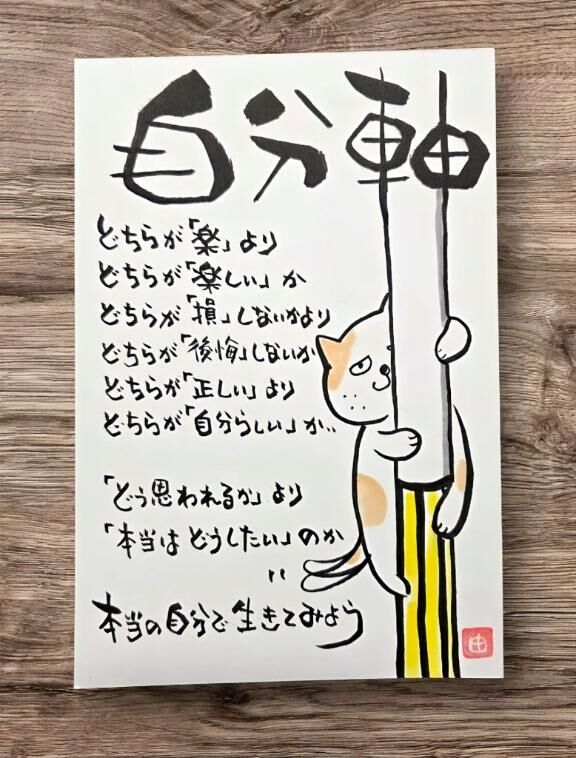 自分軸
どちらが「楽」より
どちらが「楽しい」か
どちらが「損」しないかより
どちらが「後悔」しないか
どちらが「正しい」より
どちらが「自分らしい」か‥
「どう思われるか」より
「本当は どうしたい」のか
〃
本当の自分で生きてみよう
由